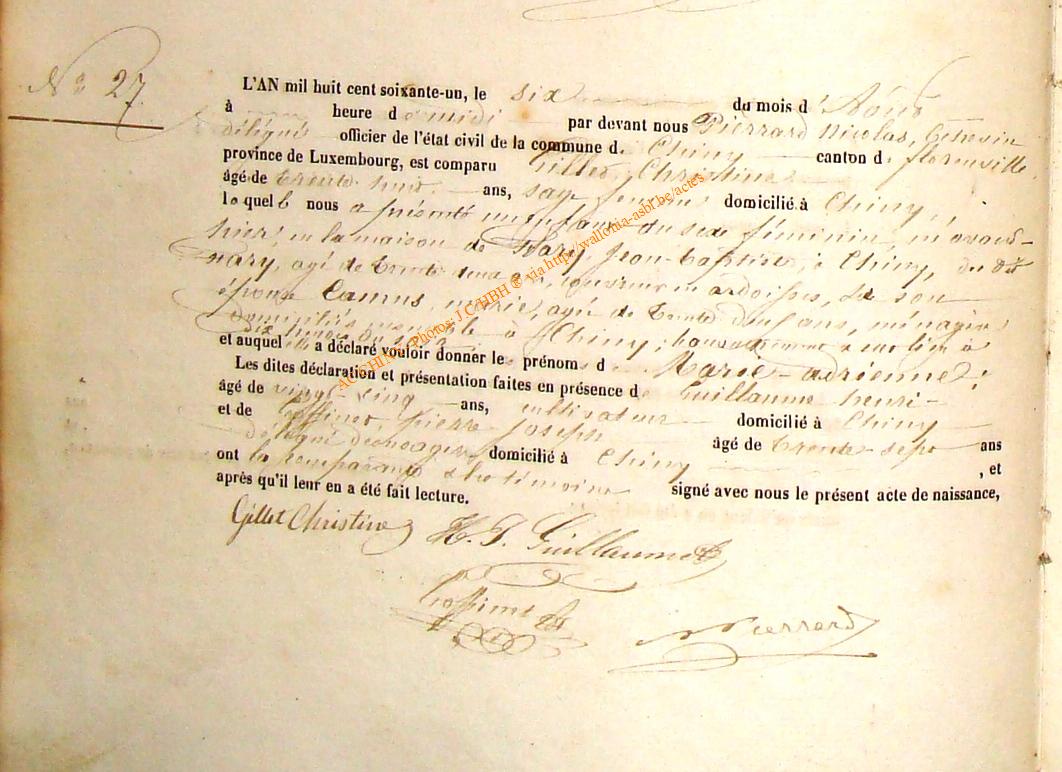 N° 27.
L'AN mil huit cent soixante-un, le six du mois d'Août
à heure de midi par devant nous Pierrard Nicolas, Echevin
délégué officier de l'état civil de la commune d. Chiny canton d. florenville
province de Luxembourg, est comparu Gillet, Christine
âgé de trente huit ans, sage femme domicilié à Chiny,
lequel nous a présenté un enfant du sexe féminin, né avant-
hier, en la maison de Hary, Jean-Baptiste, à Chiny, du dit
hary, agé de trente deux ans, couvreur en ardoises, de son
épouse Camus, marie, agée de trente deux ans, ménagère
domiciliés à Chiny;
et auquel elle a déclaré vouloir donner le prénom d Marie-adrienne;
Les dites déclaration et présentation faites en présence de Guillaume henri-
âgé de vingt-cinq ans, cultivateur domicilié à Chiny
et de Goffinet, Pierre Joseph âgé de trente-sept ans
domicilié à Chiny , et
ont la comparante & les témoins signé avec nous le présent acte de naissance,
après qu'il leur en a été fait lecture.
Gillet Christine H. J. Guillaume
Goffinet
N Pierrard
AC CHINY - Photos: J C HBH ® via http://wallonia-asbl.be/actes